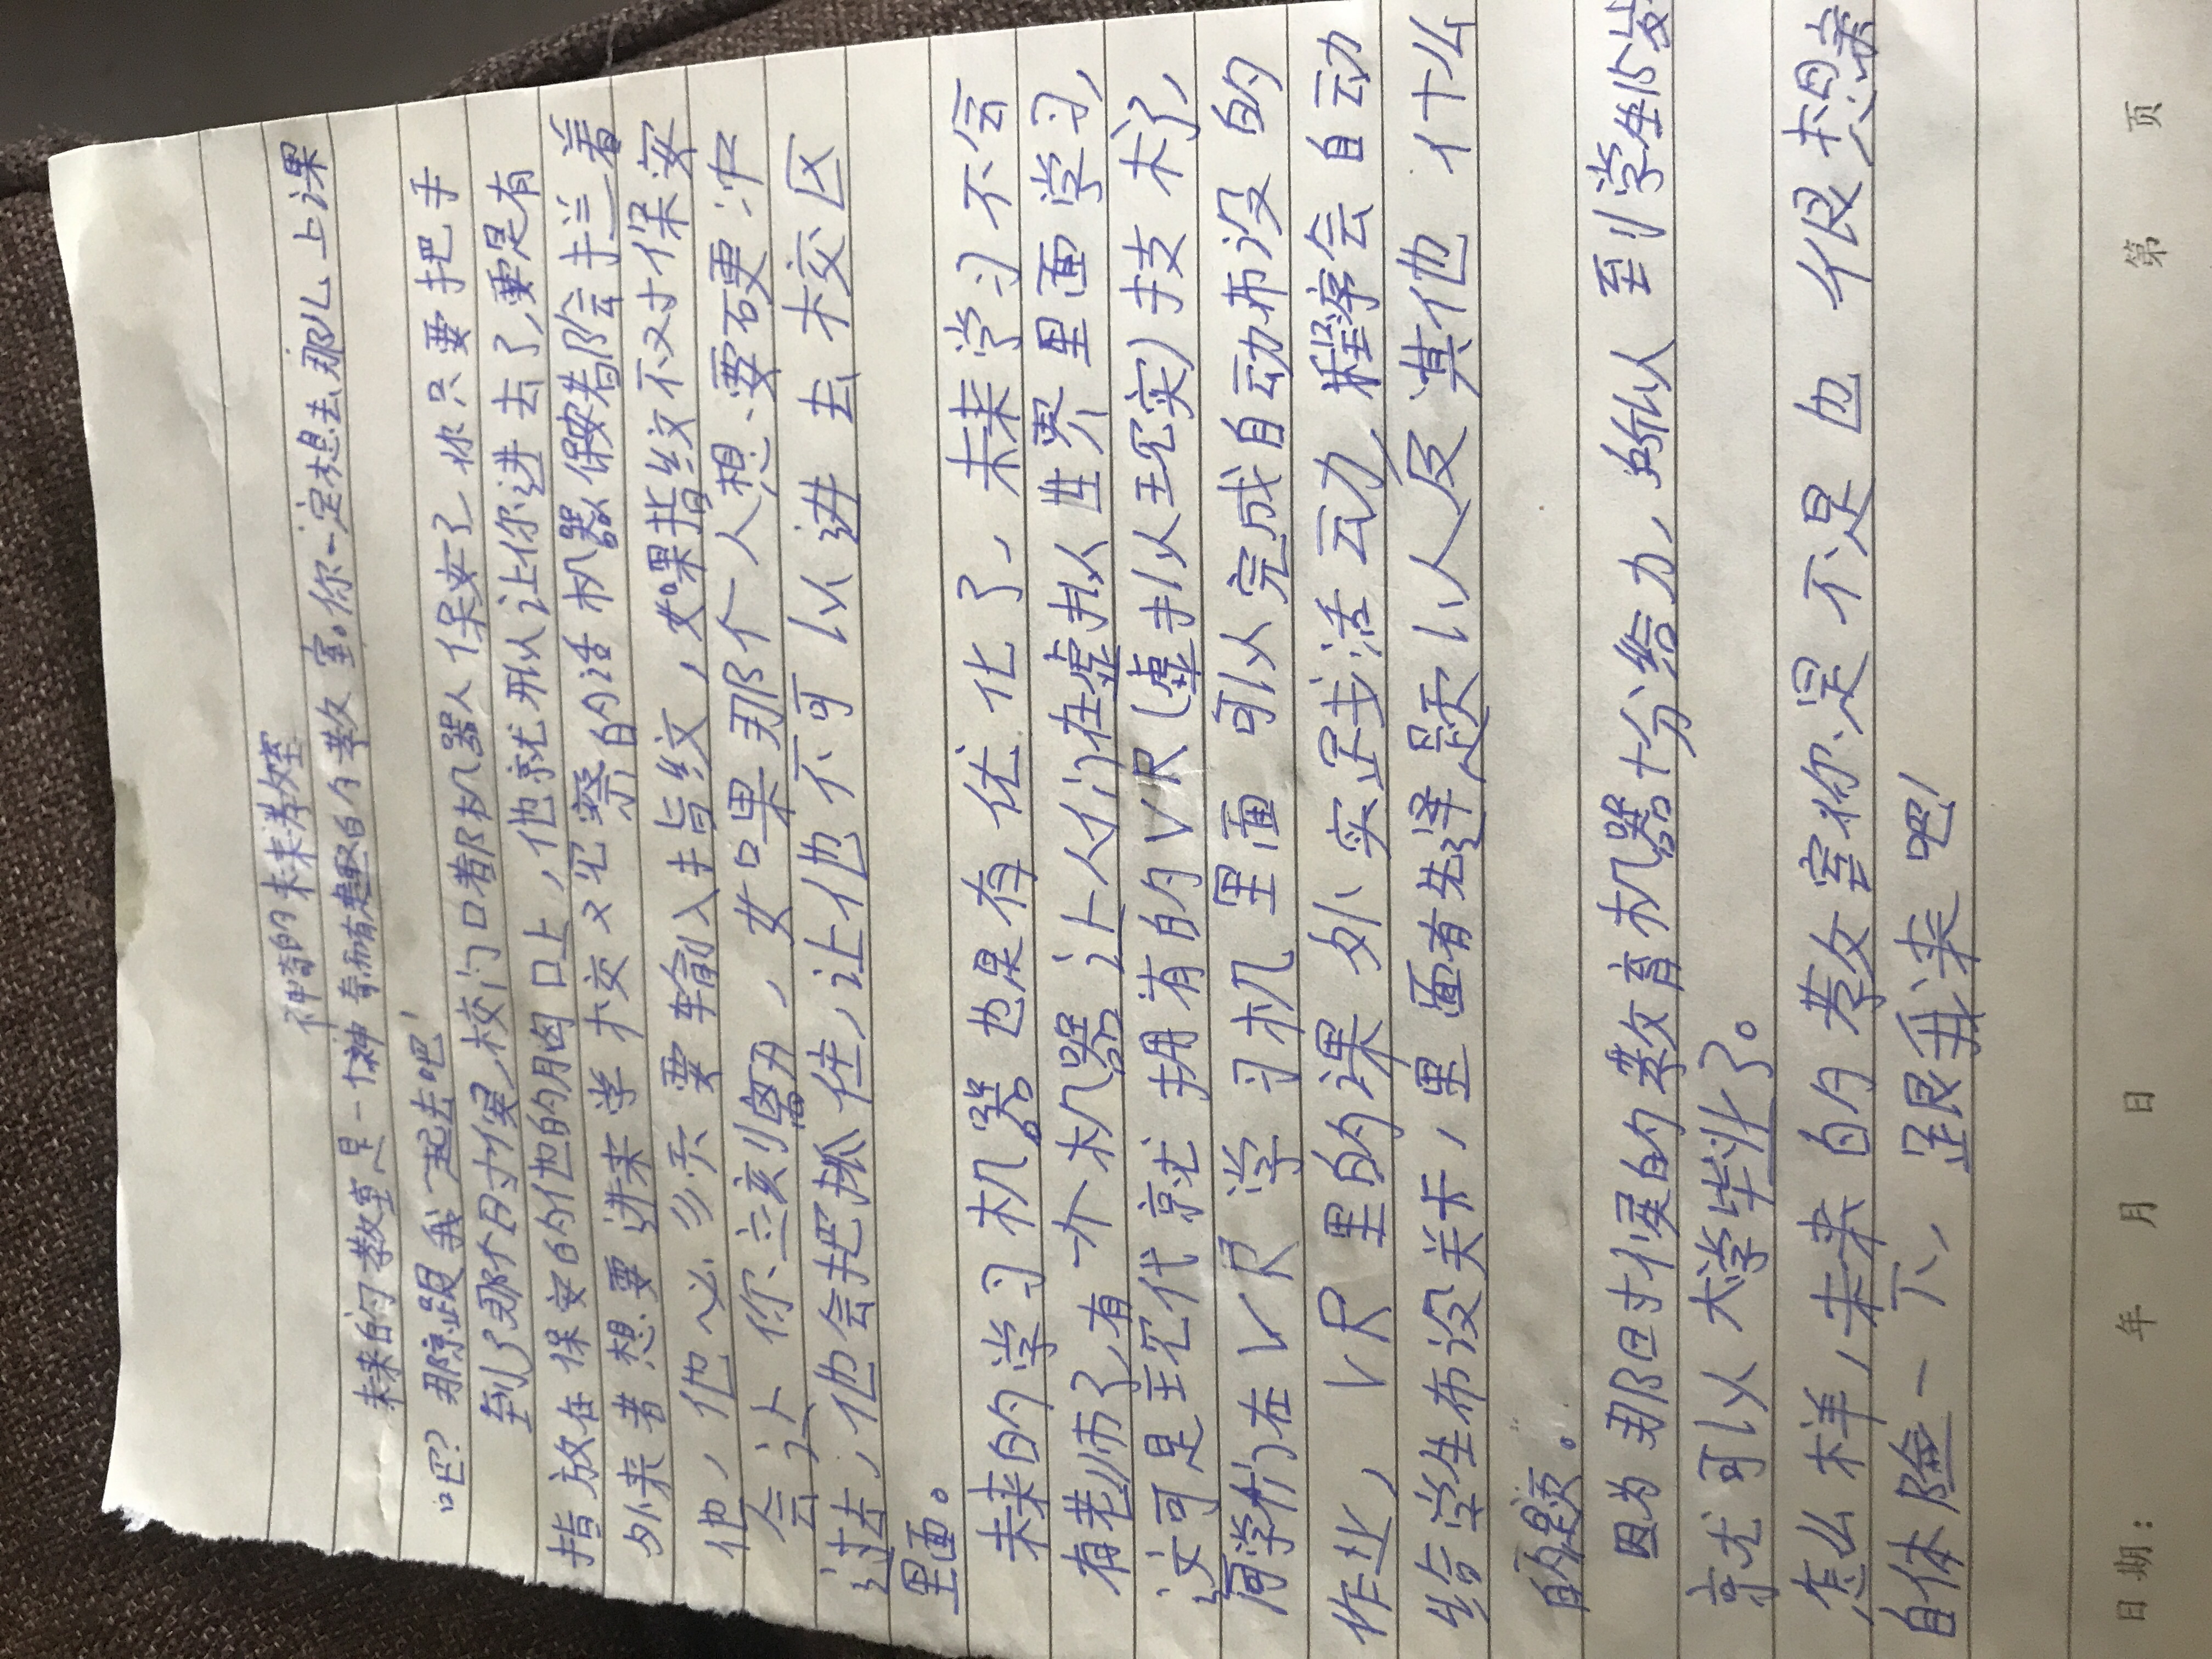 神奇的未来教室
未来的教室是一个神奇而有趣的教室。你一定想去那儿上课
吧？那就跟我一起去吧！
到了那个时候，校门口着都机器人保安了，你只要把手
指放在保安的他的胸口上，他就那以让你进去了，要是有
外来者想要进来学校又见察的话机器保安着都会手拦着
他，他必须要输入指纹，如果指纹不对保安
会让你立刻离开，如果那个人想要硬冲
过去，他会把抓住，让他不可以进去校区
里面。
未来的学习机器也是有优化了，未来学习不会
有老师了，有个机器让人们在虚拟世界里面学习，
这可是现代就拥有的VR（虚拟现实）技术了，
同学们在VR学习机里面可以完成自动布设的
作业，VR里的课外实践活动，程序会自动
给学生布设关卡，里面有选择题以及其他什么
的题。
因为那时候的教育机器十分给力，所以到学生15岁
就可以大学毕业了。
怎么样，未来的教室你是不是也很想亲
自体验一下，跟我来吧！
日期： 年 月 日 第 页